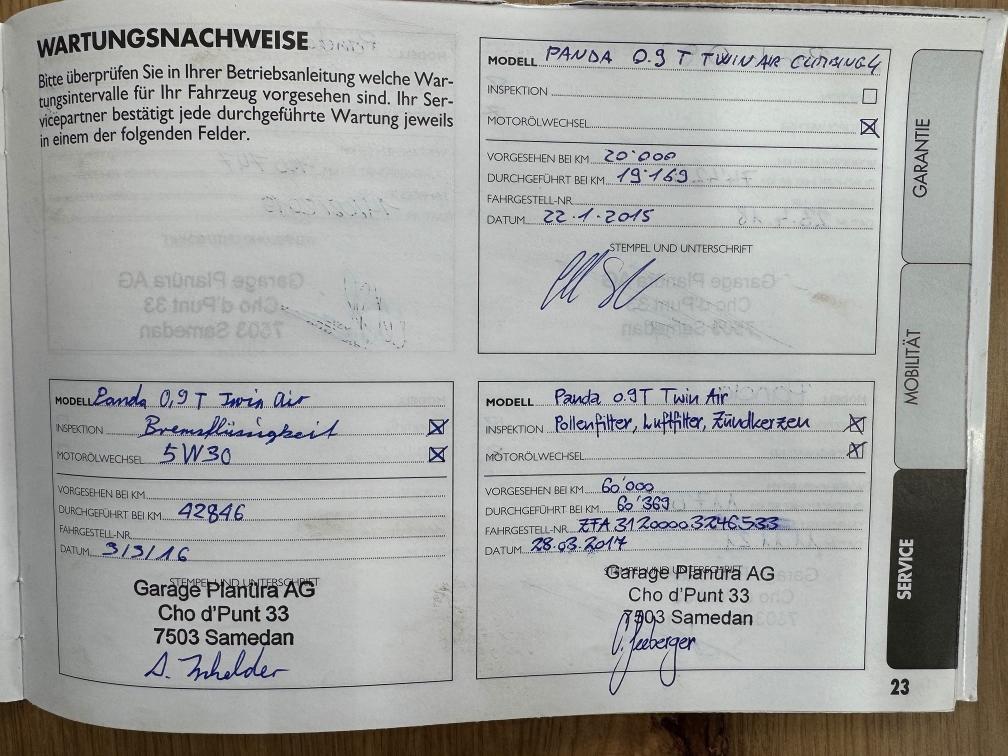 WARTUNGSNACHWEISE
Bitte überprüfen Sie in Ihrer Betriebsanleitung welche War-
tungsintervalle für Ihr Fahrzeug vorgesehen sind. Ihr Ser-
vicepartner bestätigt jede durchgeführte Wartung jeweils
in einem der folgenden Felder.
MODELL PANDA 0.9 T TWIN AIR CLIMBING 4
INSPEKTION
MOTORÖLWECHSEL
VORGESEHEN BEI KM 20'000
DURCHGEFÜHRT BEI KM 19'169
FAHRGESTELL-NR
DATUM 22.1.2015
STEMPEL UND UNTERSCHRIFT
MODELL Panda 0,9 T Twin Air
INSPEKTION Bremsflüssigkeit
MOTORÖLWECHSEL 5W30
VORGESEHEN BEI KM
DURCHGEFÜHRT BEI KM 42846
FAHRGESTELL-NR
DATUM 3/3/16
STEMPEL UND UNTERSCHRIFT
Garage Planüra AG
Cho d'Punt 33
7503 Samedan
MODELL Panda 0.9T Twin Air
INSPEKTION Pollenfilter, Luftfilter, Zündkerzen
MOTORÖLWECHSEL
VORGESEHEN BEI KM 60'000
DURCHGEFÜHRT BEI KM 60'369
FAHRGESTELL-NR ZFA31200003246533
DATUM 28.03.2017
STEMPEL UND UNTERSCHRIFT
Garage Planüra AG
Cho d'Punt 33
7503 Samedan
GARANTIE
MOBILITÄT
SERVICE
23